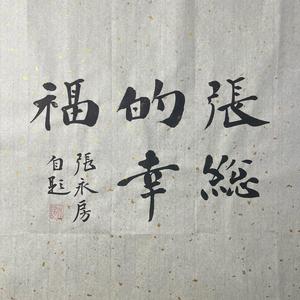 張総
的幸
福
張永房
自題